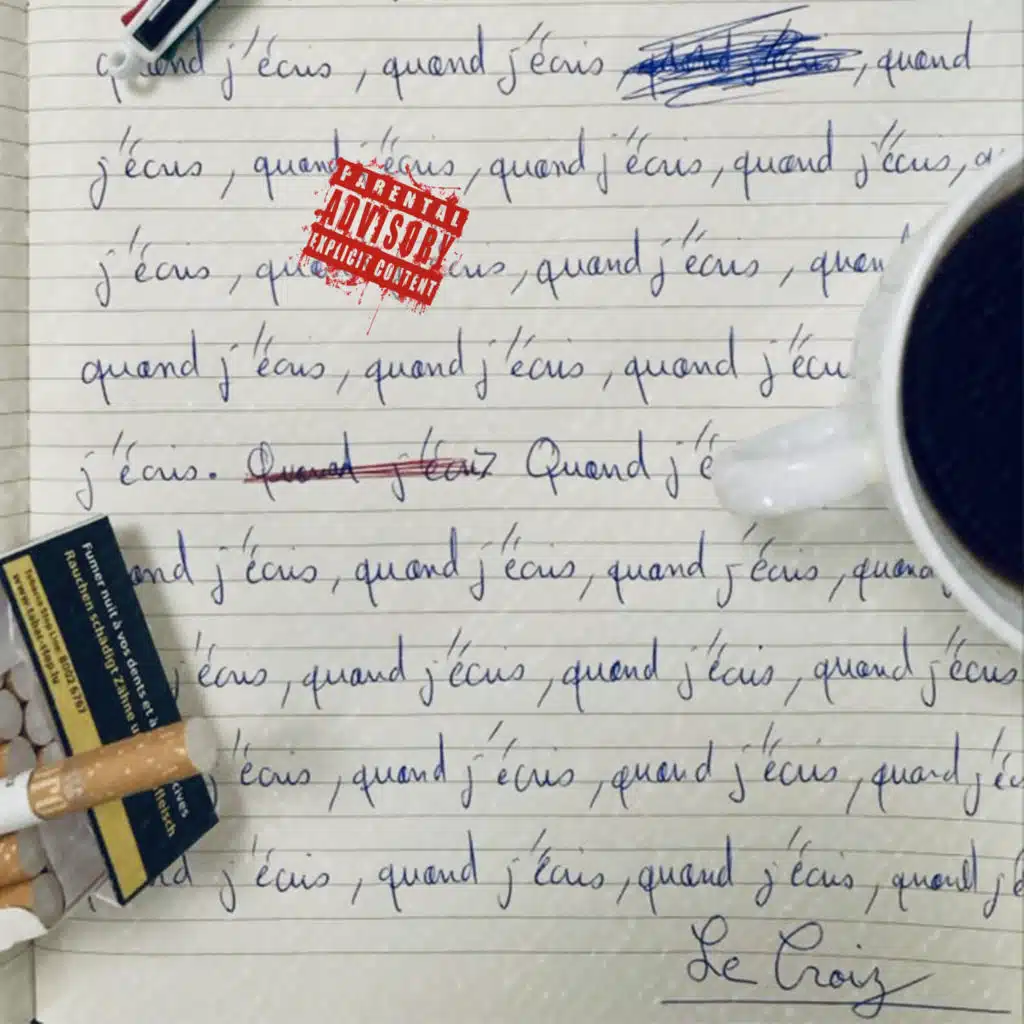 quand j'écris, quand j'écris, quand j'écris, quand
j'écris, quand j'écris, quand j'écris, quand j'écris,
PARENTAL
ADVISORY
EXPLICIT CONTENT
j'écris, quand j'écris, quand j'écris, quan
quand j'écris, quand j'écris, quand j'écri
j'écris. Quand j'écris Quand j'é
and j'écris, quand j'écris, quand j'écris, quand
j'écris, quand j'écris, quand j'écris, quand j'écris
j'écris, quand j'écris, quand j'écris, quand j'éc
nd j'écris, quand j'écris, quand j'écris, quand j'é
Le Croiz
Fumer nuit à vos dents et à
cives
Rauchen schädigt Zähne u
fleisch
Tobacco Stop Line: 8002 6767
www.tabac-stop.lu